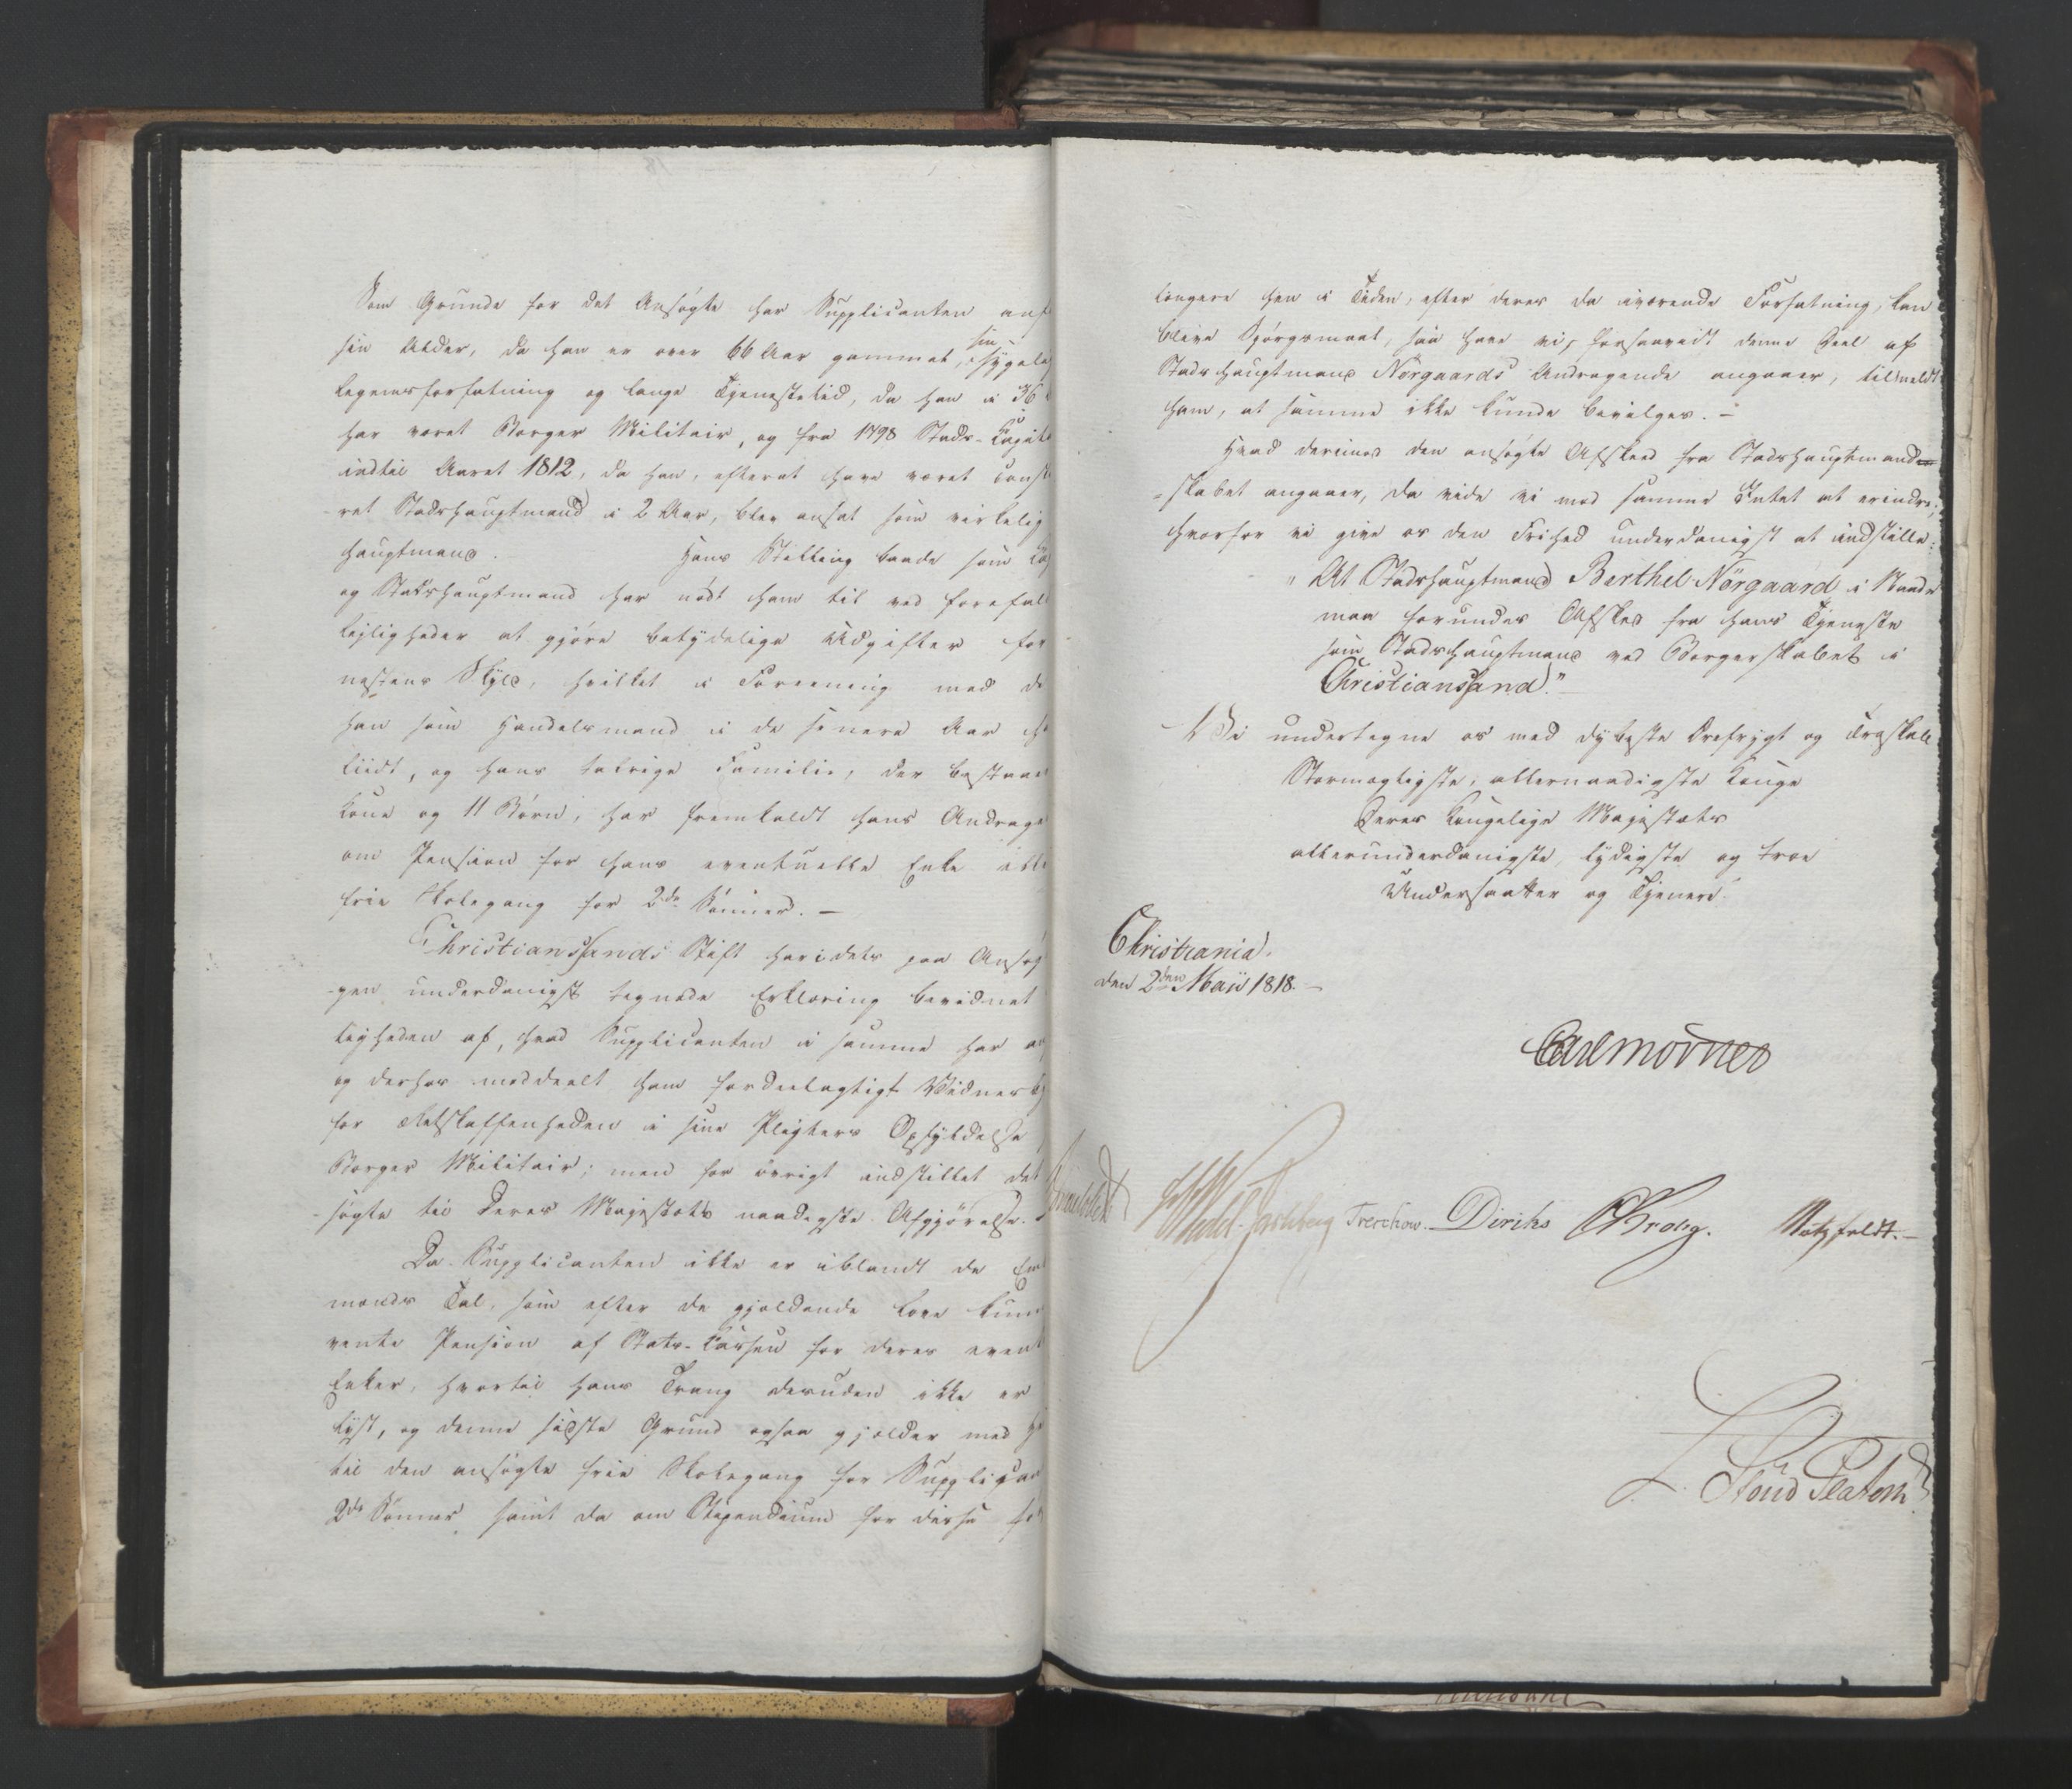 Som Grunde for det Ansøgte har Supplicanten anf
sin Alder, da han er over 66 Aar gammel, sin sygela
Legemsforfatning og lange Tjenestetid, da han i 36
har været Borger Militair, og fra 1798 Stads-Capit
indtil Aaret 1812, da han, efterat have været const
ret Stadshauptmand i 2 Aar, blev ansat som virkelig
hauptmand. Hans Stilling baade som Ca
og Stadshauptmand har nødt ham til ved forefal
Leiligheder at gjøre betydelige Udgifter for
nestens Skyld, hvilket i Foreening med de
han som Handelsmand i de senere Aar
liidt, og hans talrige Familie, der bestaaer
Kone og 11 Børn, har fremkaldt hans Andrage
om Pension for hans eventuelle Enke
frie Skolegang for 2de Sønner. —
Christianssands Stift har i dets paa Ansøg
-gen underdanigst tegnede Erklæring bevidnet
ligheden af, hvad Supplicanten i samme har
og derhos meddeelt ham fordeelagtigt Vidnesby
for Retskaffenheden i sine Pligters Opfyldelse
Borger Militair; men for øvrigt indstillet det
-søgte til Deres Majestæts naadigste Afgjørelse.
Da Supplicanten ikke er iblandt de Em
mænds Tal, som efter de gjældende Love kunn
vente Pension af Stats-Cassen for deres event
Enker, hvortil hans Trang desuden ikke er
lyst, og denne sidste Grund ogsaa gjælder med H
til den ansøgte frie Skolegang for Supplican
2de Sønner, samt da om Stipendium for disse
længere hen i Tiden, efter deres da værende Forfatning, kan
blive Spørgsmaal, saa have vi, forsaavidt denne Deel af
Stadshauptmand Nörgaards Andragende angaaer, tilmeldt
ham, at samme ikke kunde bevilges. —
Hvad derimod den ansøgte Afskeed fra Stadshauptmand
-skabet angaaer, da vide vi mod samme Intet at erindre;
hvorfor vi give os den Frihed underdanigst at indstille:
"At Stadshauptmand Berthel Nörgaard i Naade
maa forundes Afsked fra hans Tjeneste
som Stadshauptmand ved Borgerskabet i
Christianssand."
Vi undertegne os med dybeste Ærefrygt og Troskab
Stormægtigste, allernaadigste Konge
Deres Kongelige Majestæts
allerunderdanigste, lydigste og troe
Undersaatter og Tjenere.
Christiania,
den 2den Maii 1818. —
Carl Mörner
Wedel-Jarlsberg Treschow. Diriks CKrohg. Motzfeldt. —
L. Stoud Platou